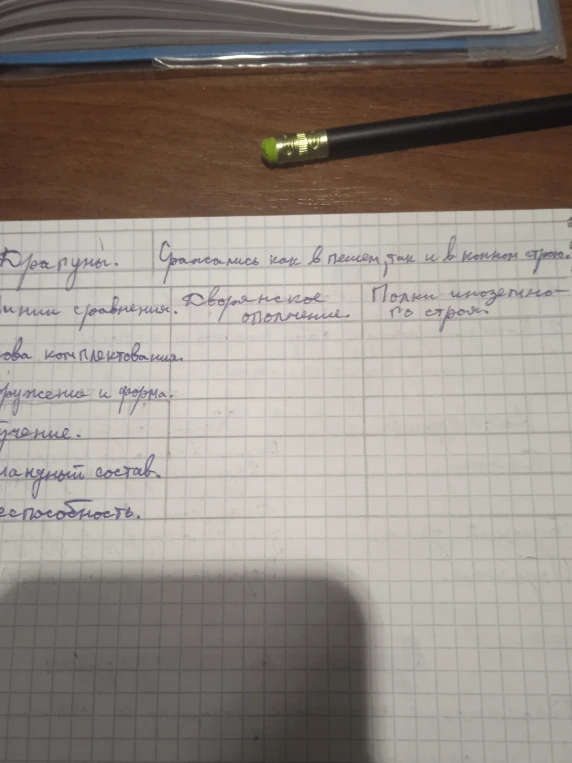 Драгуны. Сражались как в пешем, так и в конном строю.
инии сравнения. Дворянское ополчение. Полки иноземно-го строя.
ова комплектования.
оружение и форма.
учение.
андный состав.
еспособность.